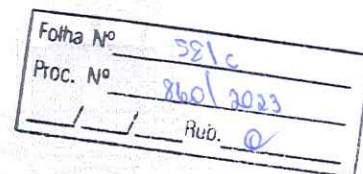 Folha Nº 581c
Proc. Nº 860/2023
__/__/__ Rub.